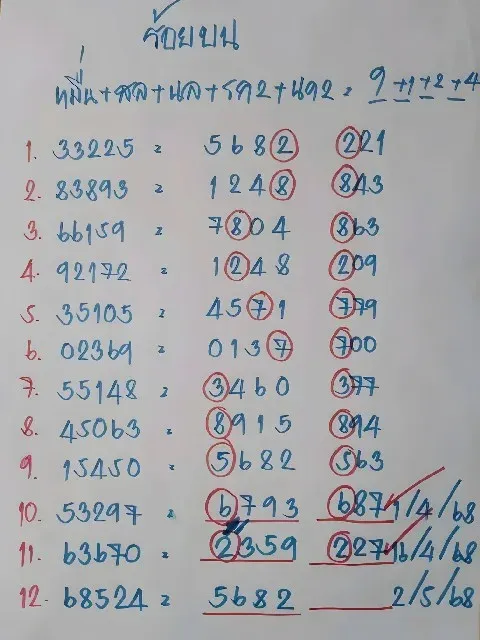 ร้อยบน
หมื่น+สล+นล+รค2+นค2 = 9 +1 +2 +4
1. 33225 = 5682 221
2. 83893 = 1248 843
3. 66159 = 7804 863
4. 92172 = 1248 209
5. 35105 = 4571 779
6. 02369 = 0137 700
7. 55148 = 3460 377
8. 45063 = 8915 894
9. 15450 = 5682 563
10. 53297 = 6793 687 1/4/68
11. 63670 = 2359 227 16/4/68
12. 68524 = 5682 2/5/68